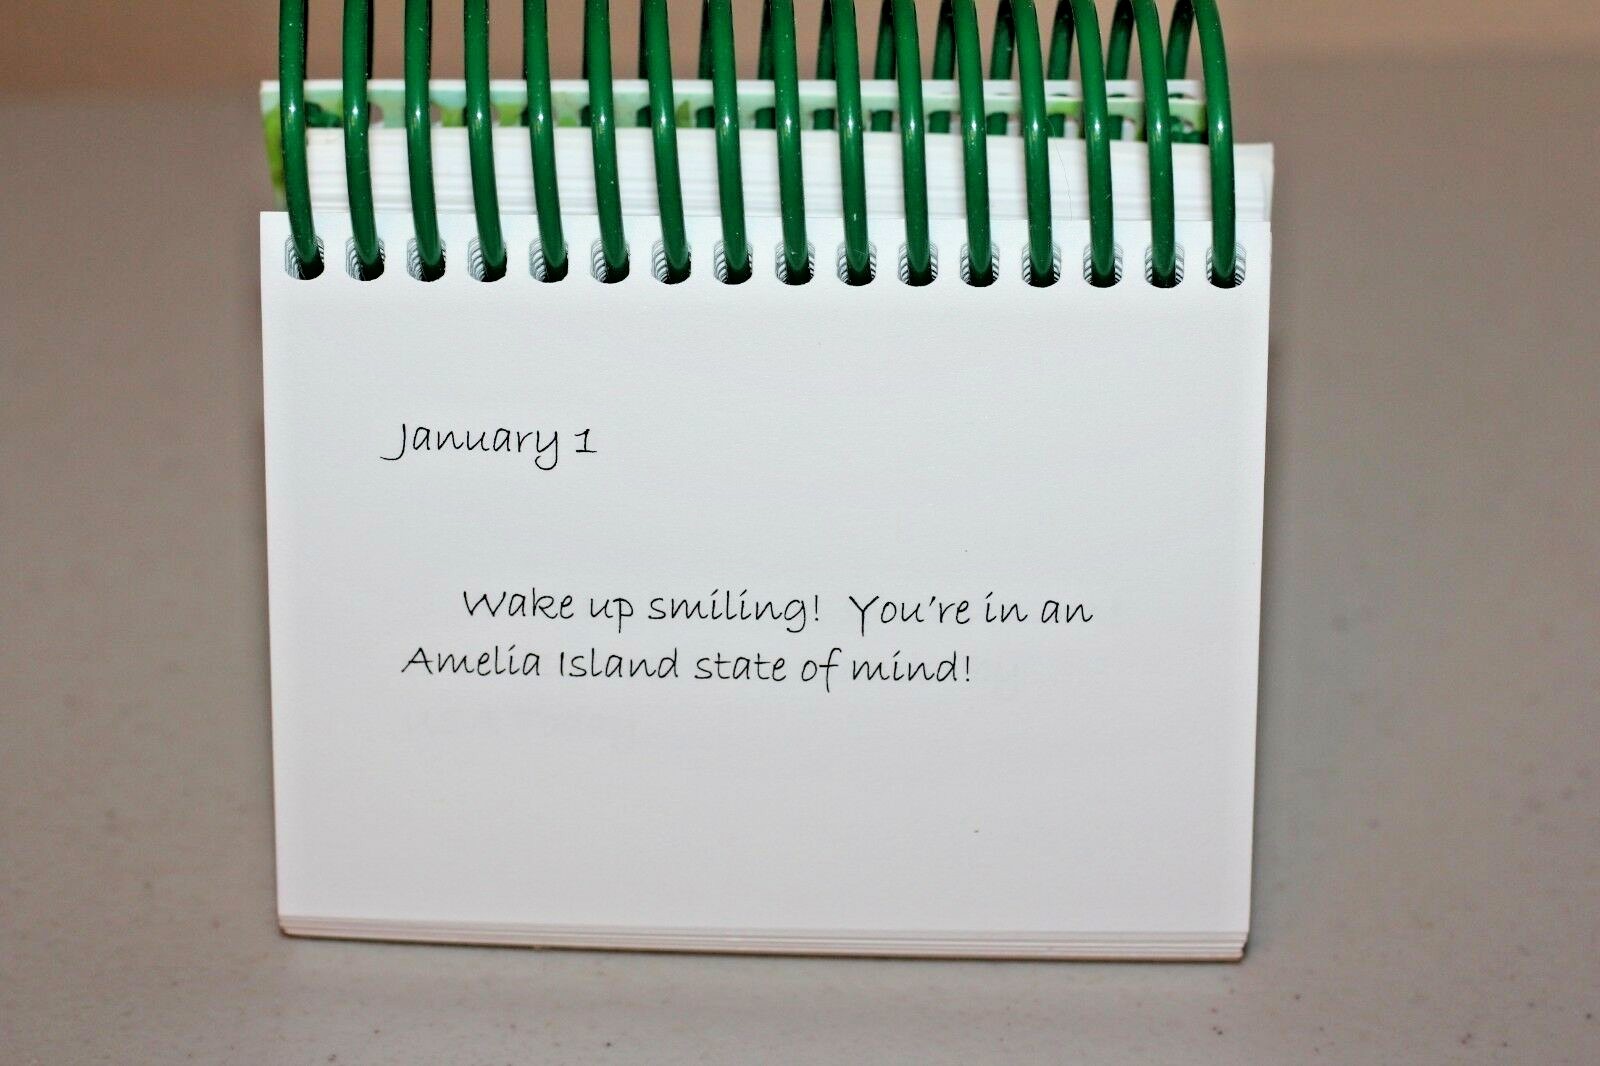 January 1
Wake up smiling! You're in an
Amelia Island state of mind!